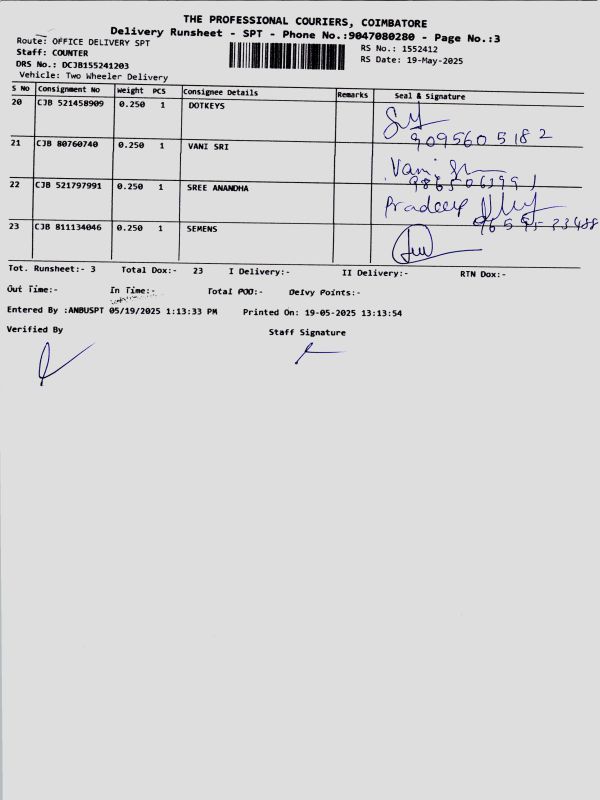 THE PROFESSIONAL COURIERS, COIMBATORE
Delivery Runsheet - SPT - Phone No.:9047080280 - Page No.:3
Route: OFFICE DELIVERY SPT
RS No.: 1552412
Staff: COUNTER
RS Date: 19-May-2025
DRS No.: DCJB155241203
Vehicle: Two Wheeler Delivery
S No Consignment No Weight PCS Consignee Details Remarks Seal & Signature
20 CJB 521458909 0.250 1 DOTKEYS
9095605182
21 CJB 80760740 0.250 1 VANI SRI
Vani
22 CJB 521797991 0.250 1 SREE ANANDHA
Pradeep
23 CJB 811134046 0.250 1 SEMENS
Tot. Runsheet:- 3 Total Dox:- 23 I Delivery:- II Delivery:- RTN Dox:-
Out Time:- In Time:- Total POD:- Delvy Points:-
Entered By :ANBUSPT 05/19/2025 1:13:33 PM Printed On: 19-05-2025 13:13:54
Verified By Staff Signature